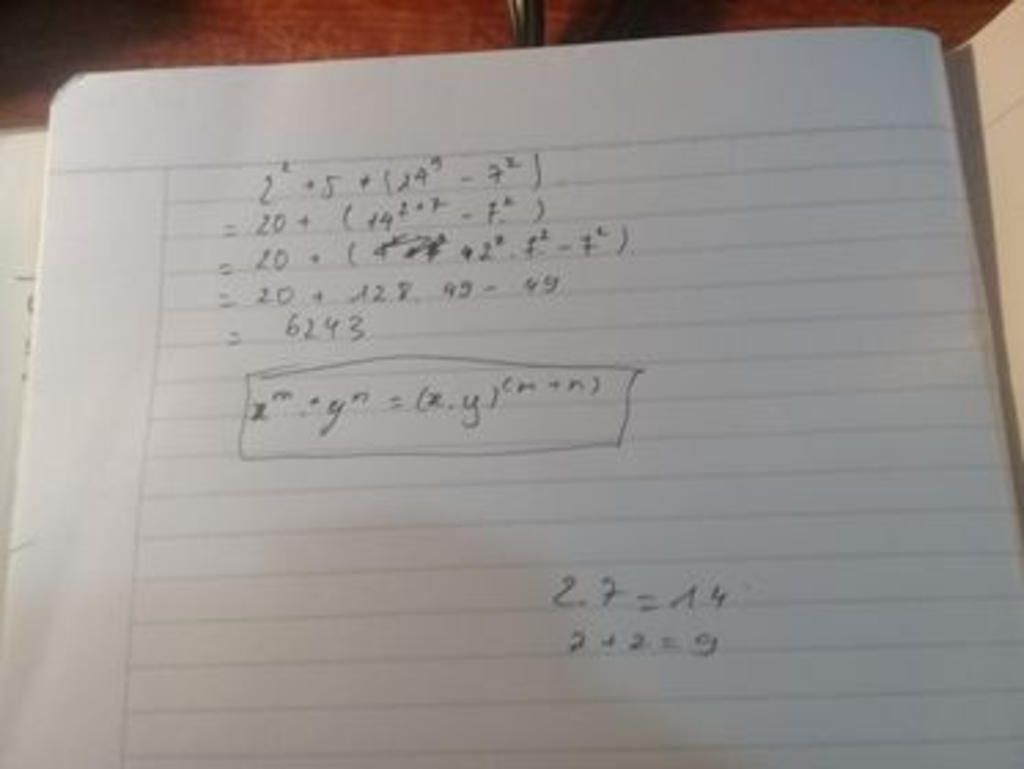 2² + 5 + (14⁹ - 7²)
= 20 + (14²⁺⁷ - 7²)
= 20 + ( 2⁷ . 7² - 7²)
= 20 + 128 . 49 - 49
= 6243
xᵐ . yⁿ = (x.y)⁽ᵐ⁺ⁿ⁾
2.7 = 14
2 + 2 = 9